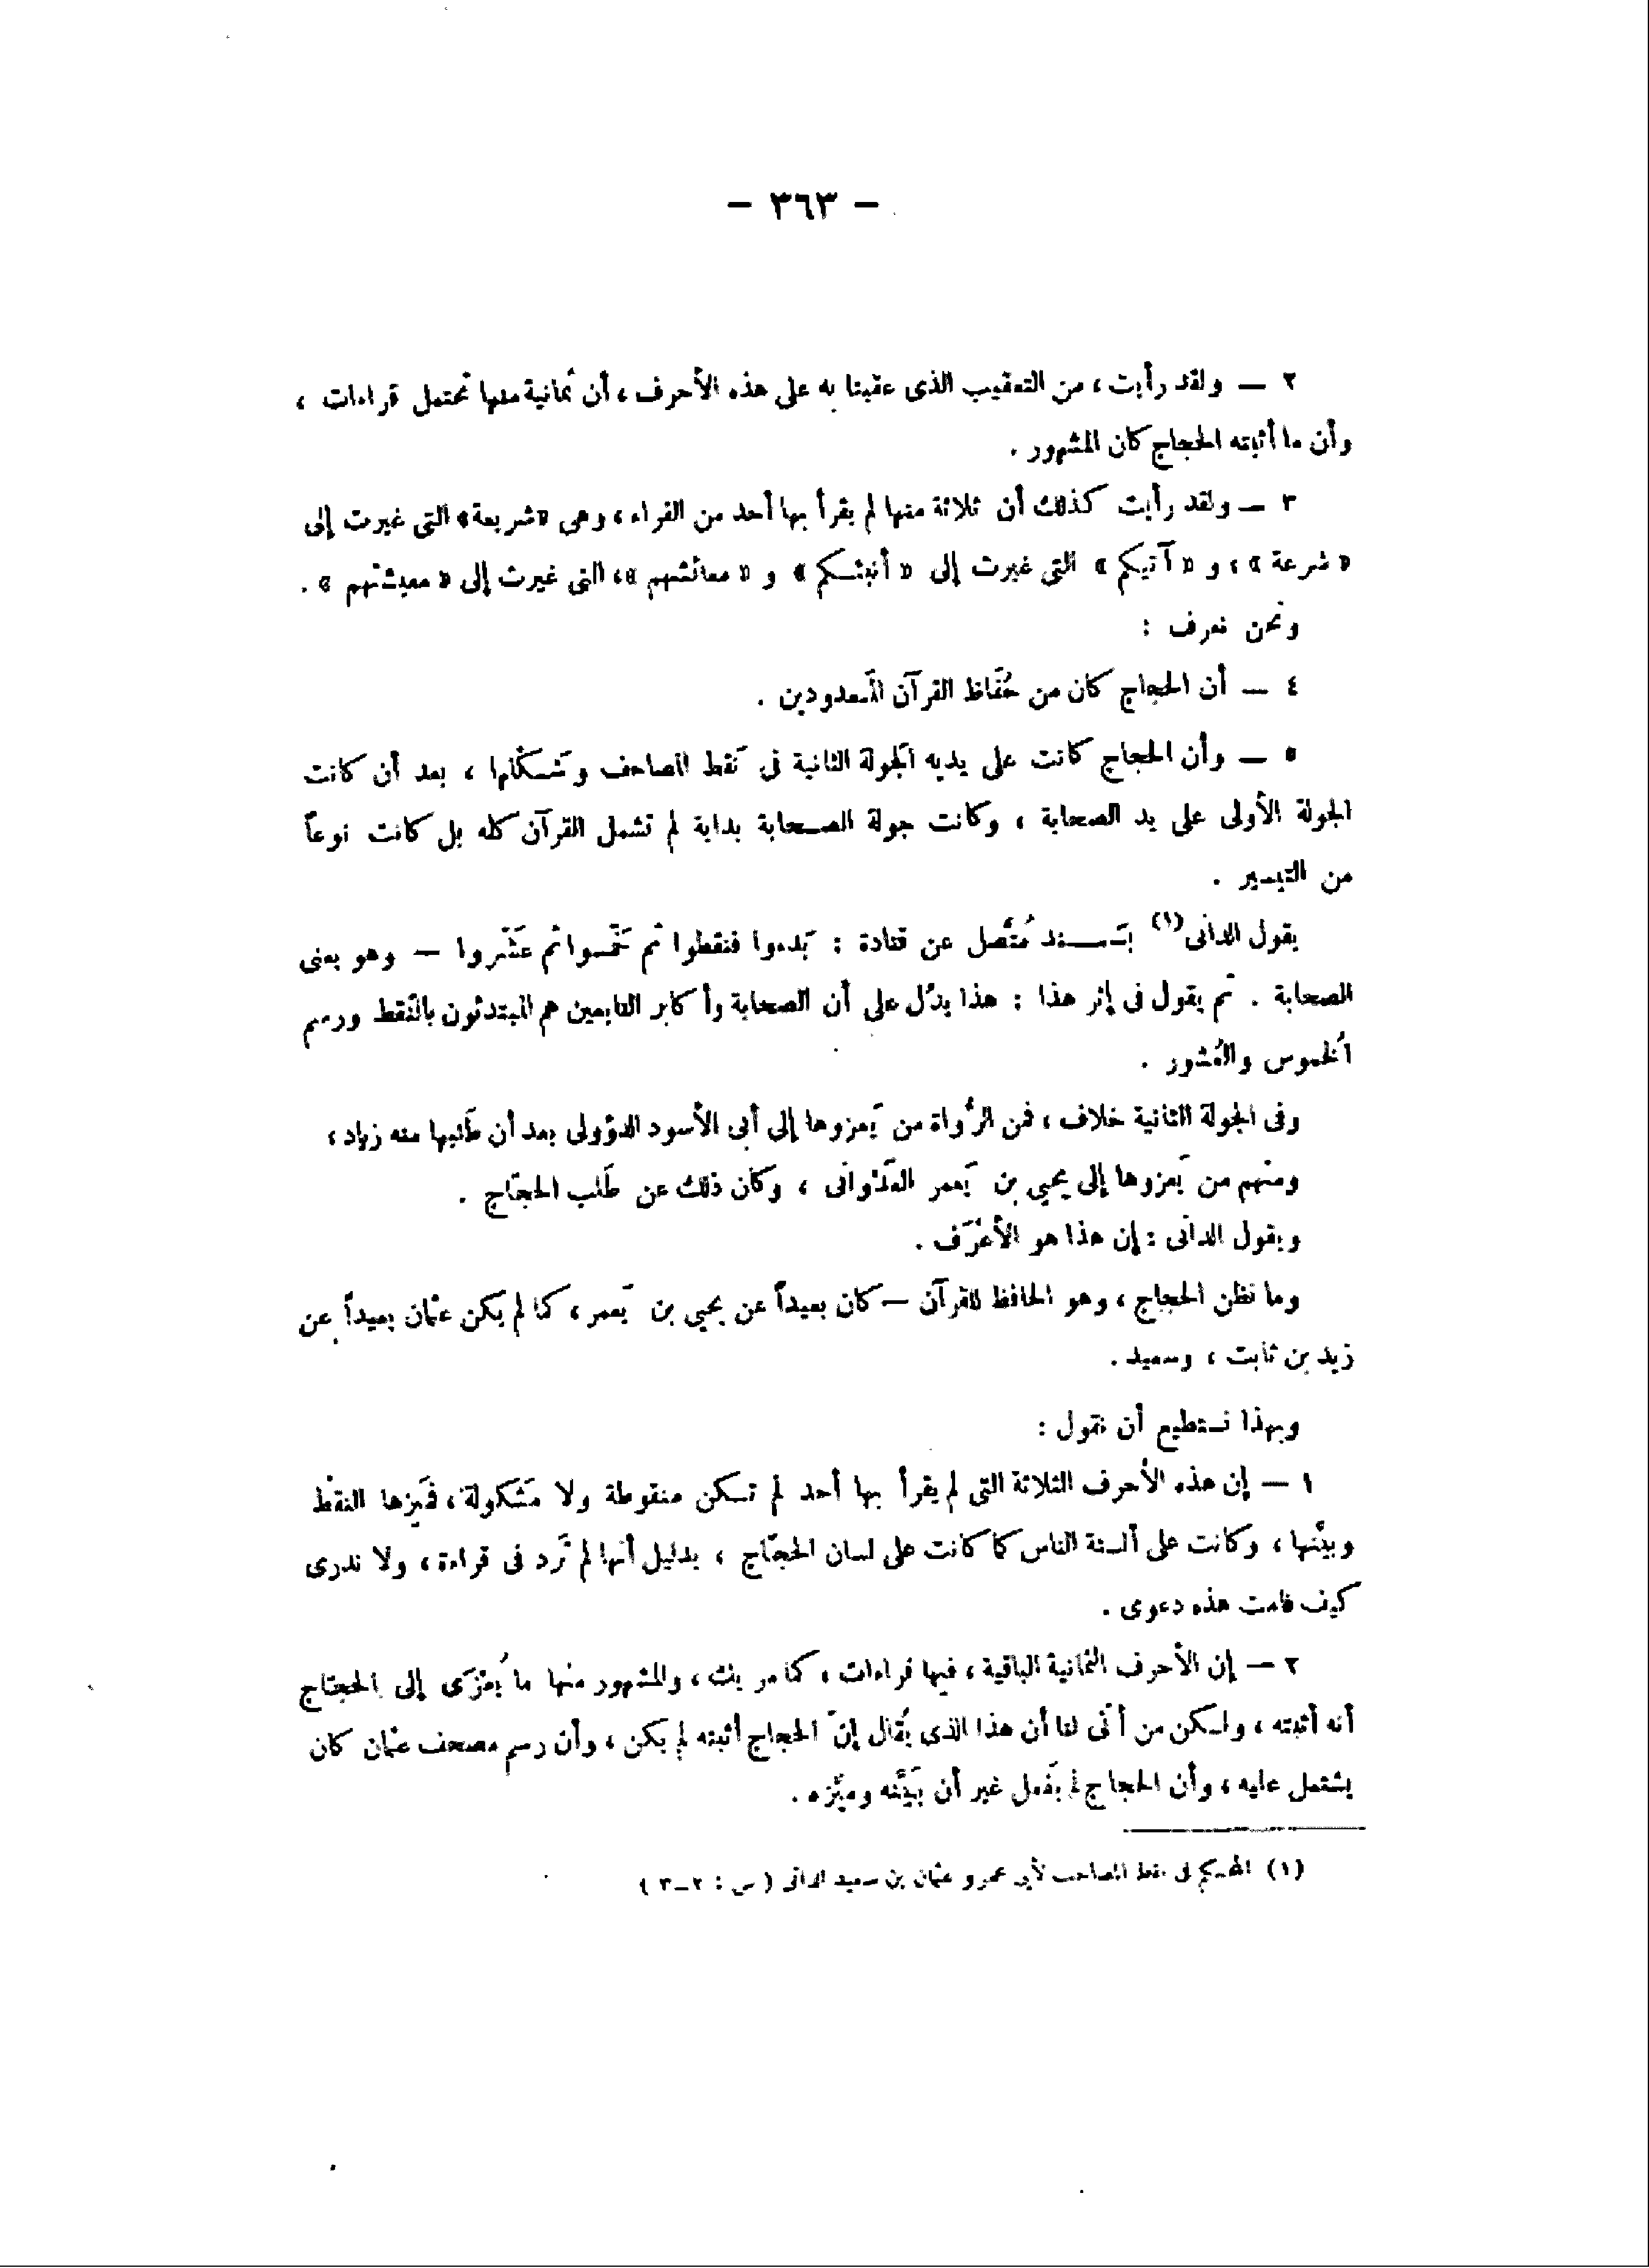 — ٣٦٣ —
٢ — ولقد رأيت ، من التعقيب الذى عقبنا به على هذه الأحرف ، أن ثمانية منها تحتمل قراءات ،
وأن ما أثبته الحجاج كان المشهور .
٣ — ولقد رأيت كذلك أن ثلاثة منها لم يقرأ بها أحد من القراء ، وهى «شريعة» التى غيرت إلى
« شرعة » ، و « آتيكم » التى غيرت إلى « أنبئكم » و « معائشهم » ، التى غيرت إلى « معيشتهم » .
ونحن نعرف :
٤ — أن الحجاج كان من حُفّاظ القرآن المَعدودين .
٥ — وأن الحجاج كانت على يديه الجَولة الثانية فى نَقط المصاحف وشَكْلها ، بعد أن كانت
الجولة الأولى على يد الصحابة ، وكانت جولة الصحابة بداية لم تشمل القرآن كله بل كانت نوعاً
من التيسير .
يقول الدانى (١) بسَند مُتّصل عن قتادة : بَدءوا فنقطوا ثم خَمّسوا ثم عَشّروا — وهو يعنى
الصحابة . ثم يقول فى إثر هذا : هذا يدُل على أن الصحابة وأكابر التابعين هم المبتدئون بالنّقط ورسم
الخُموس والعُشور .
وفى الجولة الثانية خلاف ، فمن الرُّواة من يَعزوها إلى أبى الأسود الدؤولى بعد أن طَلبها منه زياد ،
ومنهم من يَعزوها إلى يحيى بن يَعمر العَدْوانى ، وكان ذلك عن طَلب الحجّاج .
ويقول الدانى : إن هذا هو الأعْرَف .
وما نظن الحجاج ، وهو الحافظ للقرآن — كان بعيداً عن يحيى بن يَعمر ، كما لم يَكن عثمان بعيداً عن
زيد بن ثابت ، وسعيد .
وبهذا نستطيع أن نقول :
١ — إن هذه الأحرف الثلاثة التى لم يقرأ بها أحد لم تكن منقوطة ولا مَشكولة ، فمَيزها النقْط
وبيّنها ، وكانت على ألسنة الناس كما كانت على لسان الحجّاج ، بدليل أنها لم تَرد فى قراءة ، ولا ندرى
كيف قامت هذه دعوى .
٢ — إن الأحرف الثمانية الباقية ، فيها قراءات ، كما مر بك ، والمشهور منها ما يُعْزَى إلى الحجّاج
أنه أثبته ، ولكن من أنّى لنا أن هذا الذى يُقال إنّ الحجاج أثبته لم يكن ، وأن رسم مصحف عثمان كان
يشتمل عليه ، وأن الحجاج لم يَفعل غير أن بَيّنه وميّزه .
(١) المحكم فى نقط المصاحف لأبى عمرو عثمان بن سعيد الدانى ( ص : ٢—٣ )